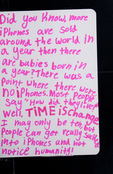 Did you Know, more
iPhones are sold
around the world In
a year then there
are babies born in
a year? There was a
point where there were
no iPhones. Most people
say "How did they live?"
well, TIME is Change
I may only be ten but
People can get really sucked
into iPhones and not
notice humanity!